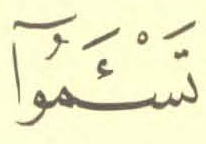 تَسْـَٔمُوٓا